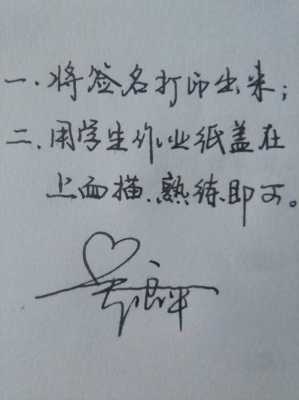 一.将签名打印出来;
二.用学生作业纸盖在
上面描.熟练即可。